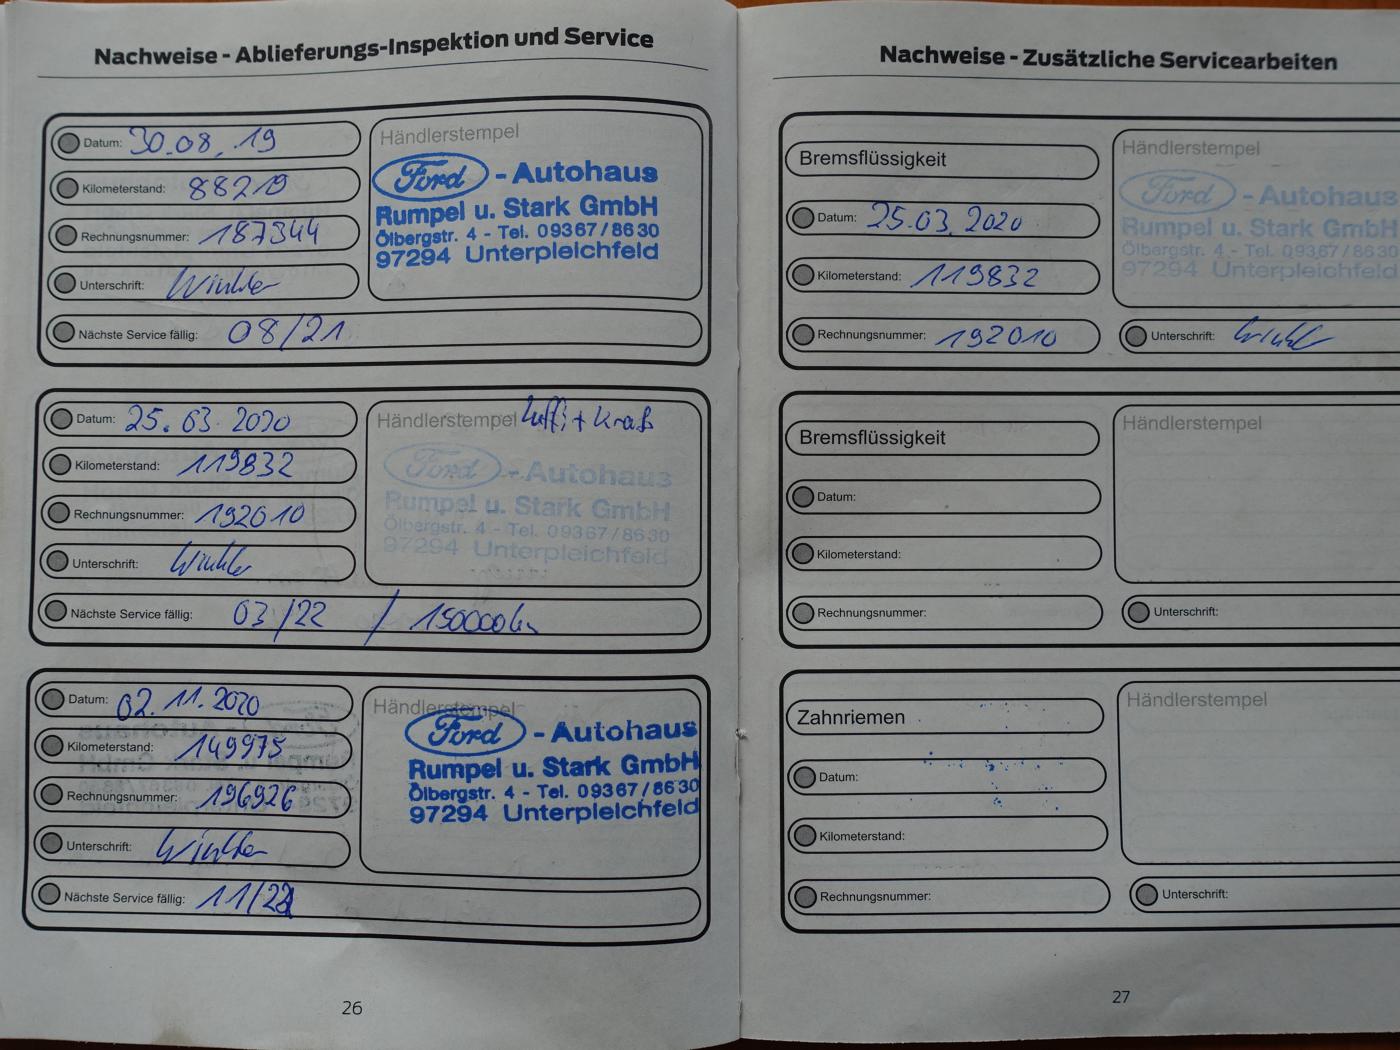 Nachweise - Ablieferungs-Inspektion und Service
Datum: 30.08.19
Kilometerstand: 88219
Rechnungsnummer: 187344
Unterschrift: Winkler
Nächste Service fällig: 08/21
Händlerstempel
Ford - Autohaus
Rumpel u. Stark GmbH
Ölbergstr. 4 - Tel. 09367/8630
97294 Unterpleichfeld
Datum: 25.03.2020
Kilometerstand: 119832
Rechnungsnummer: 192010
Unterschrift: Winkler
Nächste Service fällig: 03/22 / 150000km
Händlerstempel Luffi + Kraft
Ford - Autohaus
Rumpel u. Stark GmbH
Ölbergstr. 4 - Tel. 09367/8630
97294 Unterpleichfeld
Datum: 02.11.2020
Kilometerstand: 149975
Rechnungsnummer: 196926
Unterschrift: Winkler
Nächste Service fällig: 11/22
Händlerstempel
Ford - Autohaus
Rumpel u. Stark GmbH
Ölbergstr. 4 - Tel. 09367/8630
97294 Unterpleichfeld
26
Nachweise - Zusätzliche Servicearbeiten
Bremsflüssigkeit
Datum: 25.03.2020
Kilometerstand: 119832
Rechnungsnummer: 192010
Händlerstempel
Ford - Autohaus
Rumpel u. Stark GmbH
Ölbergstr. 4 - Tel. 09367/8630
97294 Unterpleichfeld
Unterschrift: Winkler
Bremsflüssigkeit
Datum:
Kilometerstand:
Rechnungsnummer:
Händlerstempel
Unterschrift:
Zahnriemen
Datum:
Kilometerstand:
Rechnungsnummer:
Händlerstempel
Unterschrift:
27